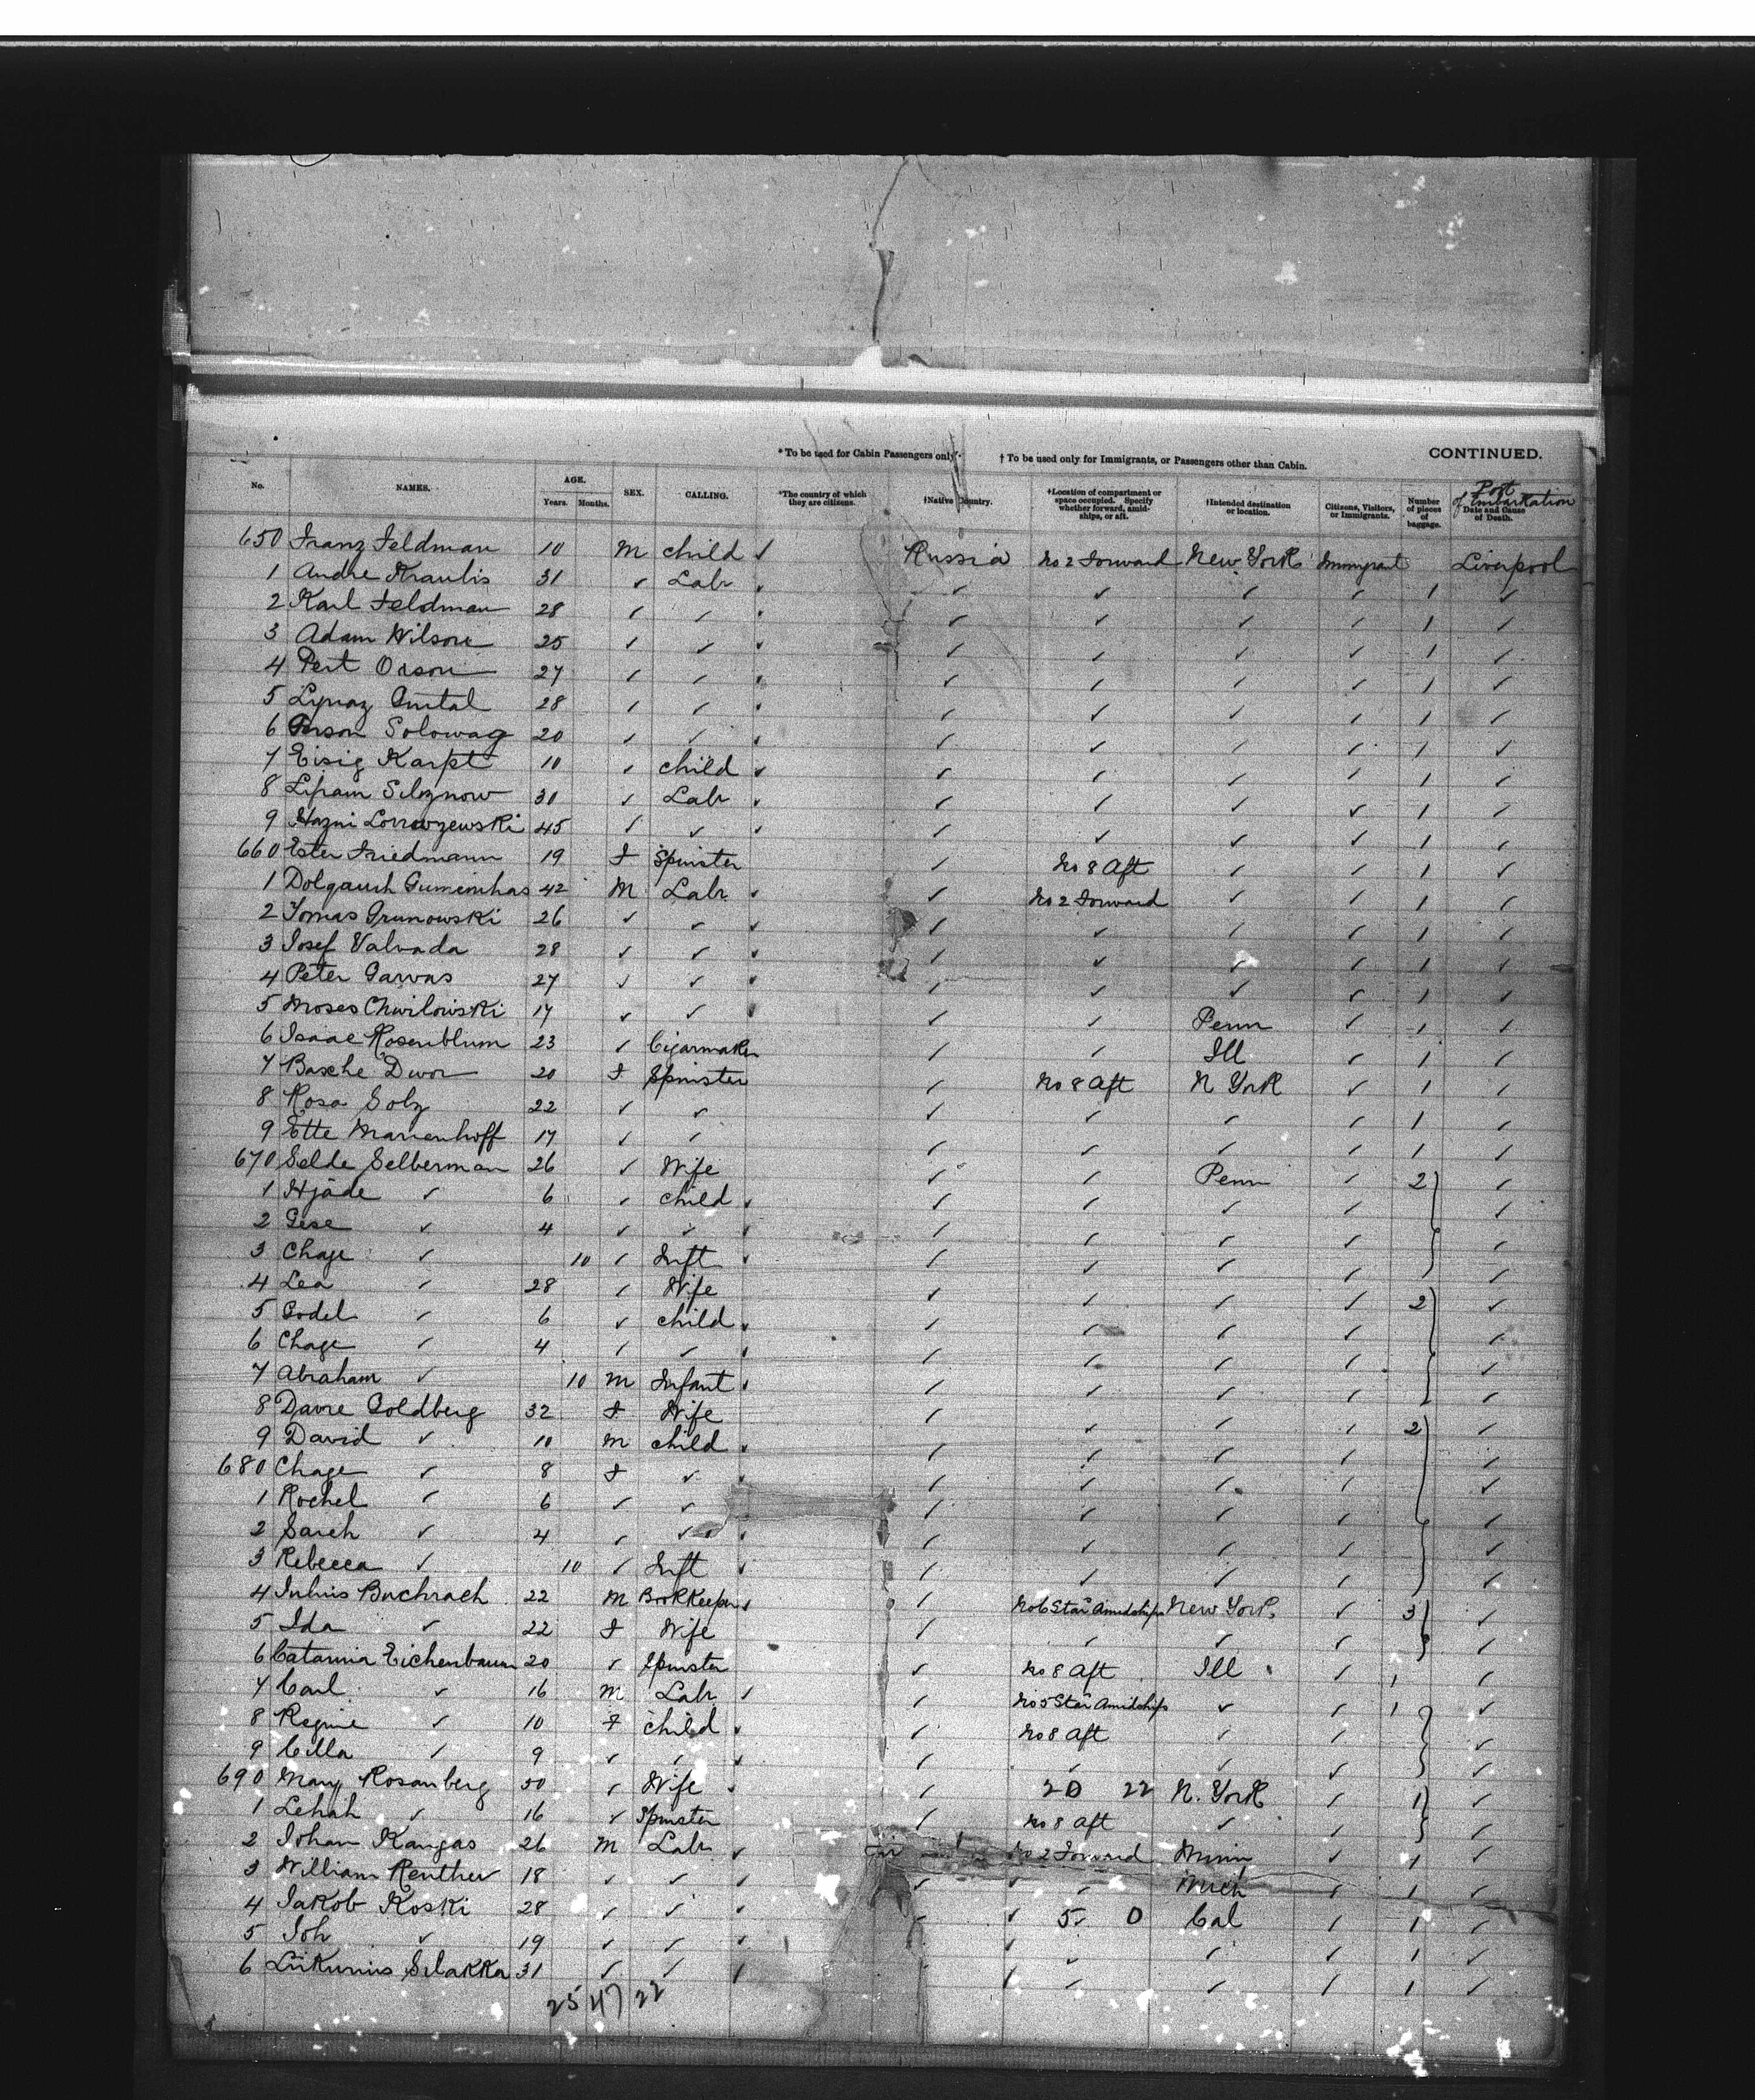 *To be used for Cabin Passengers only. † To be used only for Immigrants, or Passengers other than Cabin. CONTINUED.
No. NAMES. AGE. Years. Months. SEX. CALLING. *The country of which they are citizens. †Native Country. †Location of compartment or space occupied. Specify whether forward, amidships, or aft. †Intended destination or location. Citizens, Visitors, or Immigrants. Number of pieces of baggage. Port of Embarkation Date and Cause of Death.
650 Franz Feldman 10 M child ✓ Russia No 2 Forward New York Immigrant Liverpool
1 Andre Kraulis 31 ✓ Labr ✓ ✓ ✓ ✓ ✓ 1 ✓
2 Karl Feldman 28 ✓ ✓ ✓ ✓ ✓ ✓ ✓ 1 ✓
3 Adam Wilson 25 ✓ ✓ ✓ ✓ ✓ ✓ ✓ 1 ✓
4 Pert Orson 27 ✓ ✓ ✓ ✓ ✓ ✓ ✓ 1 ✓
5 28 ✓ ✓ ✓ ✓ ✓ ✓ ✓ 1 ✓
6 Solowag 20 ✓ ✓ ✓ ✓ ✓ ✓ ✓ 1 ✓
7 Eisig Karpt 10 ✓ child ✓ ✓ ✓ ✓ ✓ 1 ✓
8 30 ✓ Labr ✓ ✓ ✓ ✓ ✓ 1 ✓
9 45 ✓ ✓ ✓ ✓ ✓ ✓ ✓ 1 ✓
660 Ester Friedmann 19 F Spinster ✓ No 8 Aft ✓ ✓ 1 ✓
1 42 M Labr ✓ ✓ No 2 Forward ✓ ✓ 1 ✓
2 Tomas Grunowski 26 ✓ ✓ ✓ ✓ ✓ ✓ ✓ 1 ✓
3 Josef Valvada 28 ✓ ✓ ✓ ✓ ✓ ✓ ✓ 1 ✓
4 Peter Garvas 27 ✓ ✓ ✓ ✓ ✓ ✓ ✓ 1 ✓
5 Moses Chwilowski 17 ✓ ✓ ✓ ✓ ✓ Penn ✓ 1 ✓
6 Isaac Rosenblum 23 ✓ Cigarmaker ✓ ✓ Ill ✓ 1 ✓
7 Basche Dwor 20 F Spinster ✓ No 8 Aft N York ✓ 1 ✓
8 Rosa Solz 22 ✓ ✓ ✓ ✓ ✓ ✓ 1 ✓
9 Ette Marienhoff 17 ✓ ✓ ✓ ✓ ✓ ✓ 1 ✓
670 Selde Selberman 26 ✓ Wife ✓ ✓ Penn ✓ 2 ✓
1 Hjade ✓ 6 ✓ child ✓ ✓ ✓ ✓ ✓ ✓
2 Gese ✓ 4 ✓ ✓ ✓ ✓ ✓ ✓ ✓ ✓
3 Chage ✓ 10 ✓ Inft ✓ ✓ ✓ ✓ ✓ ✓
4 Lea ✓ 28 ✓ Wife ✓ ✓ ✓ ✓ 2 ✓
5 Godel ✓ 6 ✓ child ✓ ✓ ✓ ✓ ✓ ✓
6 Chage ✓ 4 ✓ ✓ ✓ ✓ ✓ ✓ ✓ ✓
7 Abraham ✓ 10 M Infant ✓ ✓ ✓ ✓ ✓ ✓
8 Davre Goldberg 32 F Wife ✓ ✓ ✓ ✓ 2 ✓
9 David ✓ 10 M child ✓ ✓ ✓ ✓ ✓ ✓
680 Chage ✓ 8 F ✓ ✓ ✓ ✓ ✓ ✓ ✓
1 Rochel ✓ 6 ✓ ✓ ✓ ✓ ✓ ✓ ✓
2 Sareh ✓ 4 ✓ ✓ ✓ ✓ ✓ ✓ ✓ ✓
3 Rebecca ✓ 10 ✓ Inft ✓ ✓ ✓ ✓ ✓ ✓
4 Julius Buchrach 22 M Bookkeeper ✓ ✓ No 6 Star Amidships New York ✓ 3 ✓
5 Ida ✓ 22 F Wife ✓ ✓ ✓ ✓ ✓
6 Catarina Eichenbaum 20 ✓ Spinster ✓ No 8 Aft Ill ✓ 1 ✓
7 Carl ✓ 16 M Labr ✓ ✓ No 5 Star Amidships ✓ ✓ 1 ✓
8 Regine ✓ 10 F child ✓ ✓ No 8 Aft ✓ ✓ ✓
9 Cilla ✓ 9 ✓ ✓ ✓ ✓ ✓ ✓ ✓ ✓
690 Mary Rosanberg 50 ✓ Wife ✓ ✓ 20 22 N. York ✓ 1 ✓
1 Lehah ✓ 16 ✓ Spinster ✓ No 8 Aft ✓ ✓ ✓
2 Johan Kangas 26 M Labr ✓ No 2 Forward Minn ✓ 1 ✓
3 William Renther 18 ✓ ✓ ✓ ✓ ✓ Mich ✓ 1 ✓
4 Jakob Koski 28 ✓ ✓ ✓ ✓ 5 0 Cal ✓ 1 ✓
5 Joh ✓ 19 ✓ ✓ ✓ ✓ ✓ ✓ ✓ 1 ✓
6 Silakka 31 ✓ ✓ ✓ ✓ ✓ ✓ ✓ 1 ✓
25 47 22